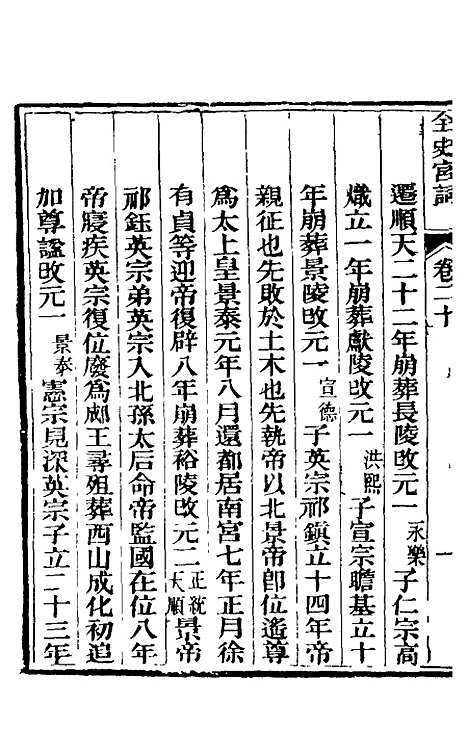 全史宮詞 卷二十 一
還順天二十二年崩葬長陵改元一永樂子仁宗高
熾立一年崩葬獻陵改元一洪熙子宣宗瞻基立十
年崩葬景陵改元一宣德子英宗祁鎮立十四年帝
親征也先敗於土木也先執帝以北景帝卽位遙尊
爲太上皇景泰元年八月還都居南宮七年正月徐
有貞等迎帝復辟八年崩葬裕陵改元二正統天順景帝
祁鈺英宗弟英宗入北孫太后命帝監國在位八年
帝寢疾英宗復位廢爲郕王尋殂葬西山成化初追
加尊諡改元一景泰憲宗見深英宗子立二十三年